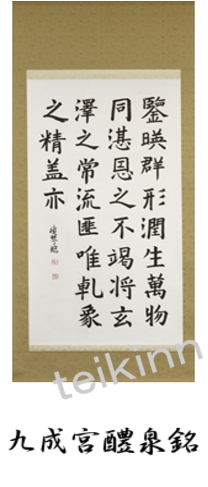 鑒暎群形潤生萬物
同湛恩之不竭将玄
澤之常流匪唯乹象
之精盖亦
teikinn
九成宮醴泉銘